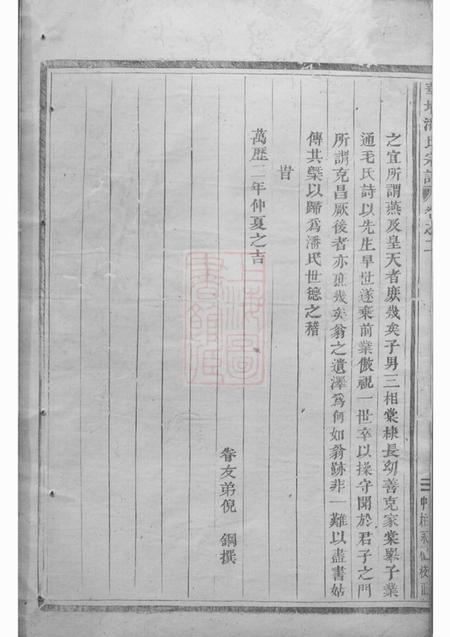 之宜所謂燕及皇天者庶幾矣子男三相棠棣長幼善克家棠舉子業
通毛氏詩以先生早世遂棄前業傲視一世卒以操守聞於君子之門
所謂克昌厥後者亦庶幾矣翁之遺澤為何如翁跡非一難以盡書姑
傳其槩以歸為潘氏世德之稽
旹
萬歷二年仲夏之吉
眷友弟倪 鋼撰
上海圖書館藏